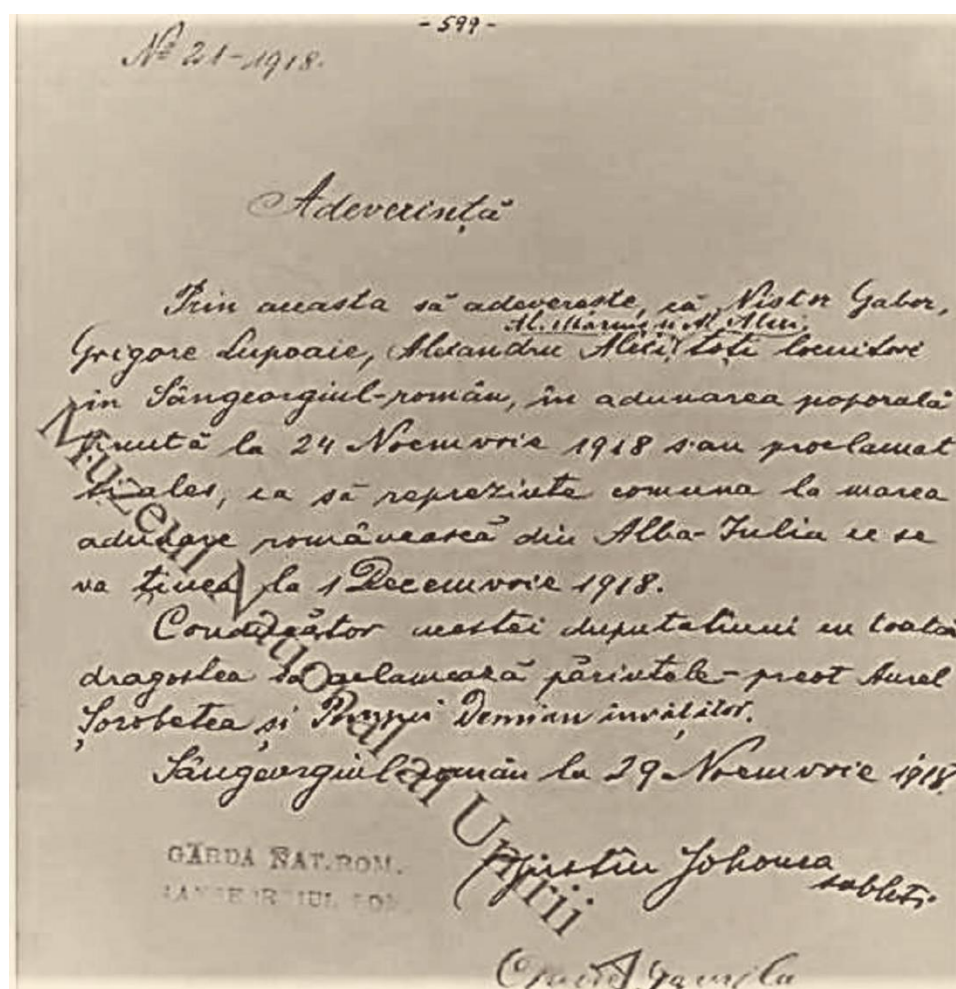 - 599 -
Nº 21-1918.
Adeverință
Prin aceasta să adeverește, că Nistor Gabor,
Al. Mărcuș și Al. Alici,
Grigore Lupoaie, Alexandru Alici, toți locuitori
in Sângeorgiul-român, in adunarea poporală
ținută la 24 Noemvrie 1918 s-au proclamat
și ales, ca să reprezinte comuna la marea
adunare românească din Alba-Iulia ce se
va ținea la 1 Decemvrie 1918.
Conducător acestei deputatiuni cu toată
dragostea să aclamează părintele-preot Aurel
Șorobetea și Pompei Demian invățător.
Sângeorgiul-român la 29 Noemvrie 1918.
GARDA NAT. ROM.
SANGEORGIUL ROM.
Justin Sohorca
sublt.
Gavrila
Muzeul Național al Unirii